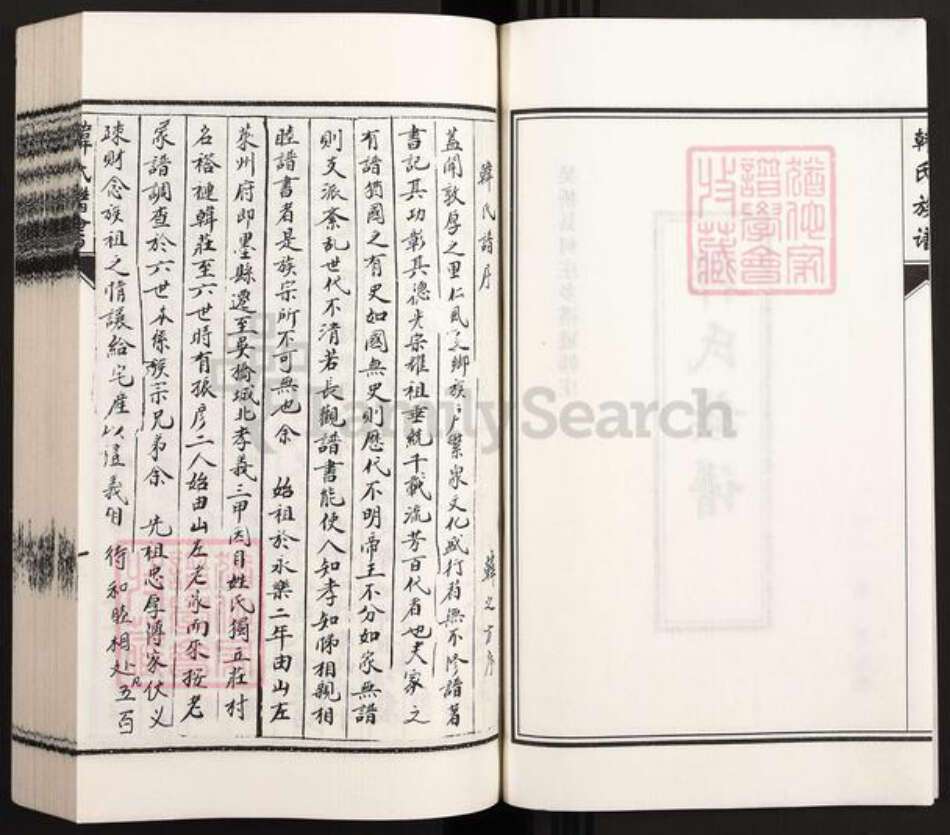 韓氏族譜
遵化家譜學會收藏
韓氏譜序 韓之方序
蓋聞敦厚之里仁風之鄉族户繁衆文化盛行者無不修譜著
書記其功彰其德光宗耀祖垂統千載流芳百代者也夫家之
有譜猶國之有史如國無史則歷代不明帝王不分如家無譜
則支派紊乱世代不清若長觀譜書能使人知孝知悌相親相
睦譜書者是族宗所不可無也余 始祖於永樂二年由山左
萊州府即墨縣遷至吳橋城北孝義三甲因自姓氏獨立莊村
名褡褳韓莊至六世時有振彦二人始由山左老家而來按老
家譜調查於六世本係族宗兄弟余 先祖忠厚傳家仗义
疎财念族祖之情讓給宅産以 義 待和睦相处凡五百
韓氏譜書
FamilySearch